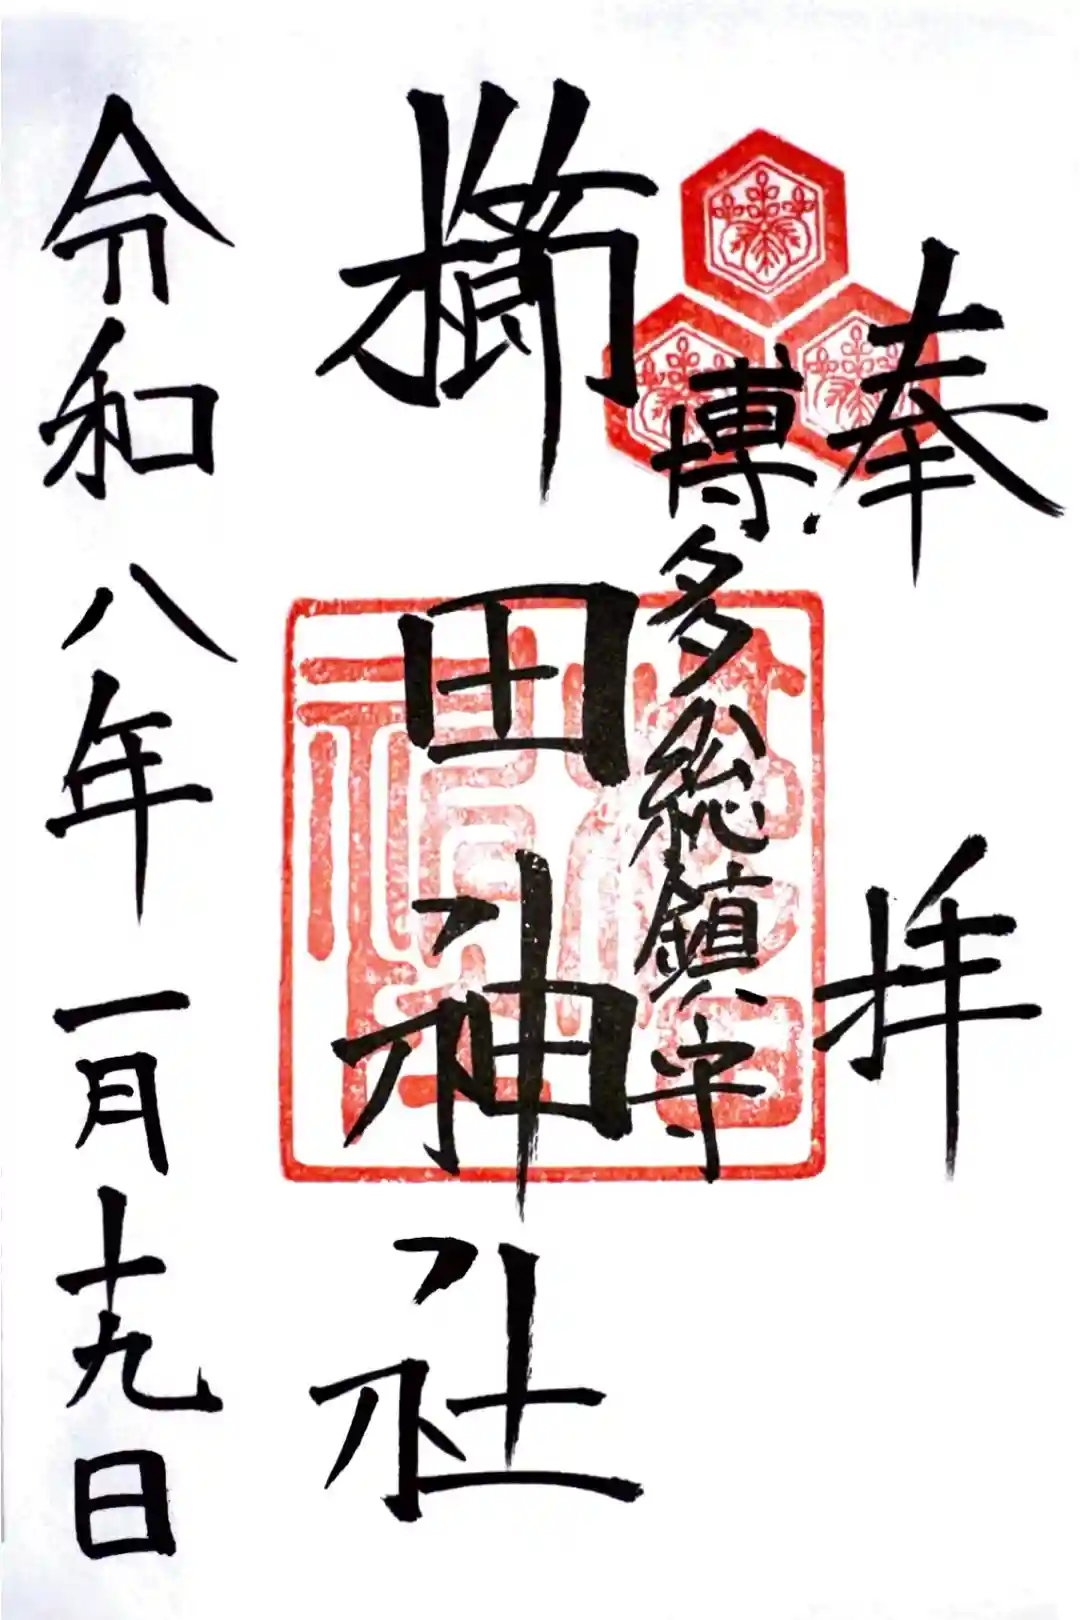 奉拝
博多総鎮守
櫛田神社
令和八年一月十九日